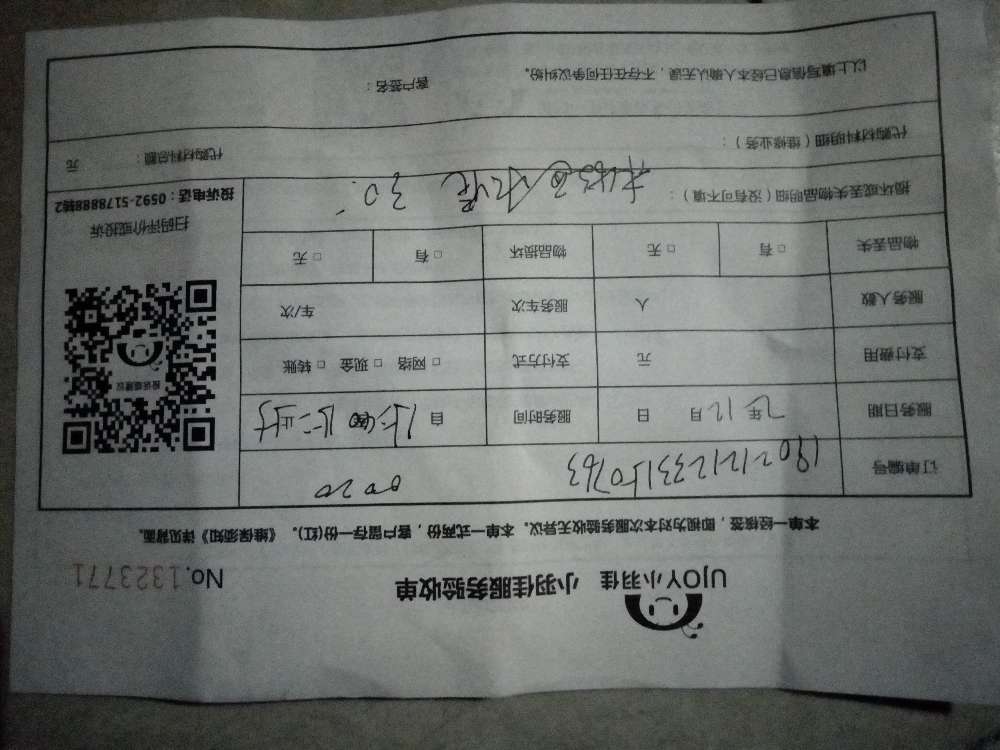 UJOY小羽佳 小羽佳服务验收单 No.1323771
本单一经核签，即视为对本次服务验收无异议。本单一式两份，客户留存一份(红)。《维保须知》详见背面。
订单编号 1902121233150763 0020
服务日期 年12月 日 服务时间 自
支付费用 元 支付方式 □网络 □现金 □转账
服务人数 人 服务车次 车/次
物品丢失 □有 □无 物品损坏 □有 □无
损坏或丢失物品明细（没有可不填）：
30
代购材料明细（维修业务）： 代购材料总额： 元
以上填写信息已经本人确认无误，不存在任何争议纠纷。
客户签名：
投诉建议
扫码评价或投诉
投诉电话：0592-5178888转2